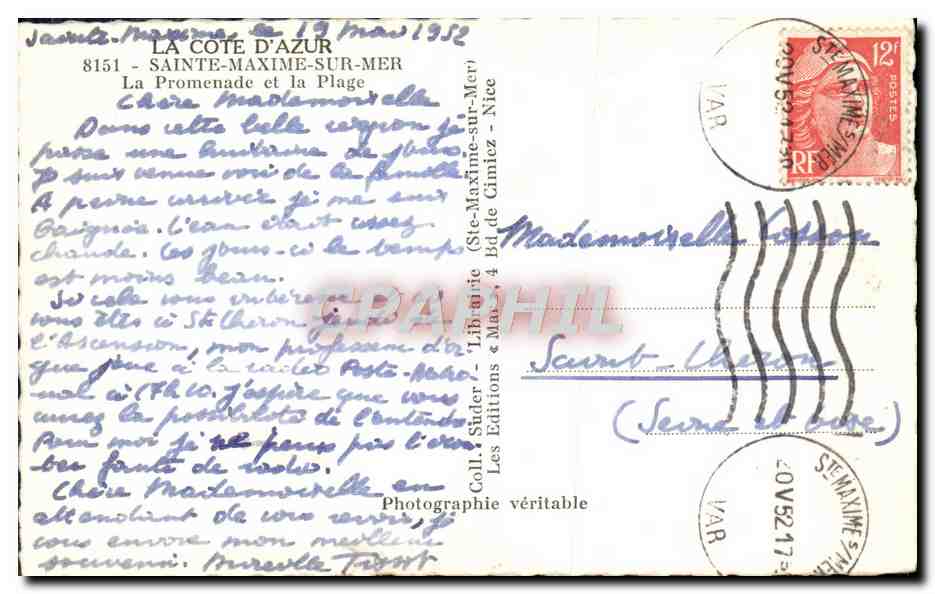 Sainte-Maxime, le 19 Mai 1952
LA COTE D'AZUR
8151 - SAINTE-MAXIME-SUR-MER
La Promenade et la Plage
Chère Mademoiselle
Dans cette belle région je
passe une huitaine de jours.
Je suis venue voir de la famille.
A peine arrivée je me suis
baignée. L'eau était assez
chaude. Ces jours-ci le temps
est moins beau.
Si cela vous intéresse
vous êtes à St Chéron jeudi
l'Ascension, mon professeur d'or
gue joue à la radio Poste-Natio
nal à 17h10. J'espère que vous
aurez la possibilité de l'entendre
Pour moi je ne peux pas l'écou
ter faute de radio.
Chère Mademoiselle en
attendant de vous revoir, je
vous envoie mon meilleur
souvenir. Mireille Tissot
Coll. Suder - Librairie (Ste-Maxime-sur-Mer)
Les Editions « Mar », 4 Bd de Cimiez - Nice
Photographie véritable
CPAPHIL
12F
POSTES
RF
STE MAXIME S/MER
20 V 52 17 30
VAR
Mademoiselle
Saint-Chéron
(Seine et Oise)
STE MAXIME S/MER
20 V 52 17
VAR